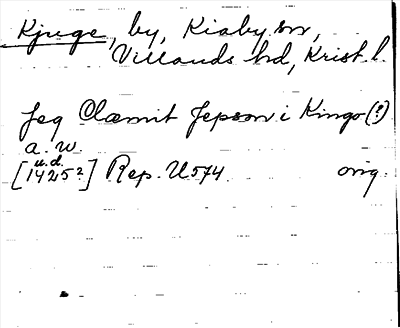 Kjuge, by, Kiaby sn,
Villands hd, Krist. l.
Jeg Clæmit Jepson i Kingo (?)
a. w.
[u.d. 1425?] Rep. U 574. orig.